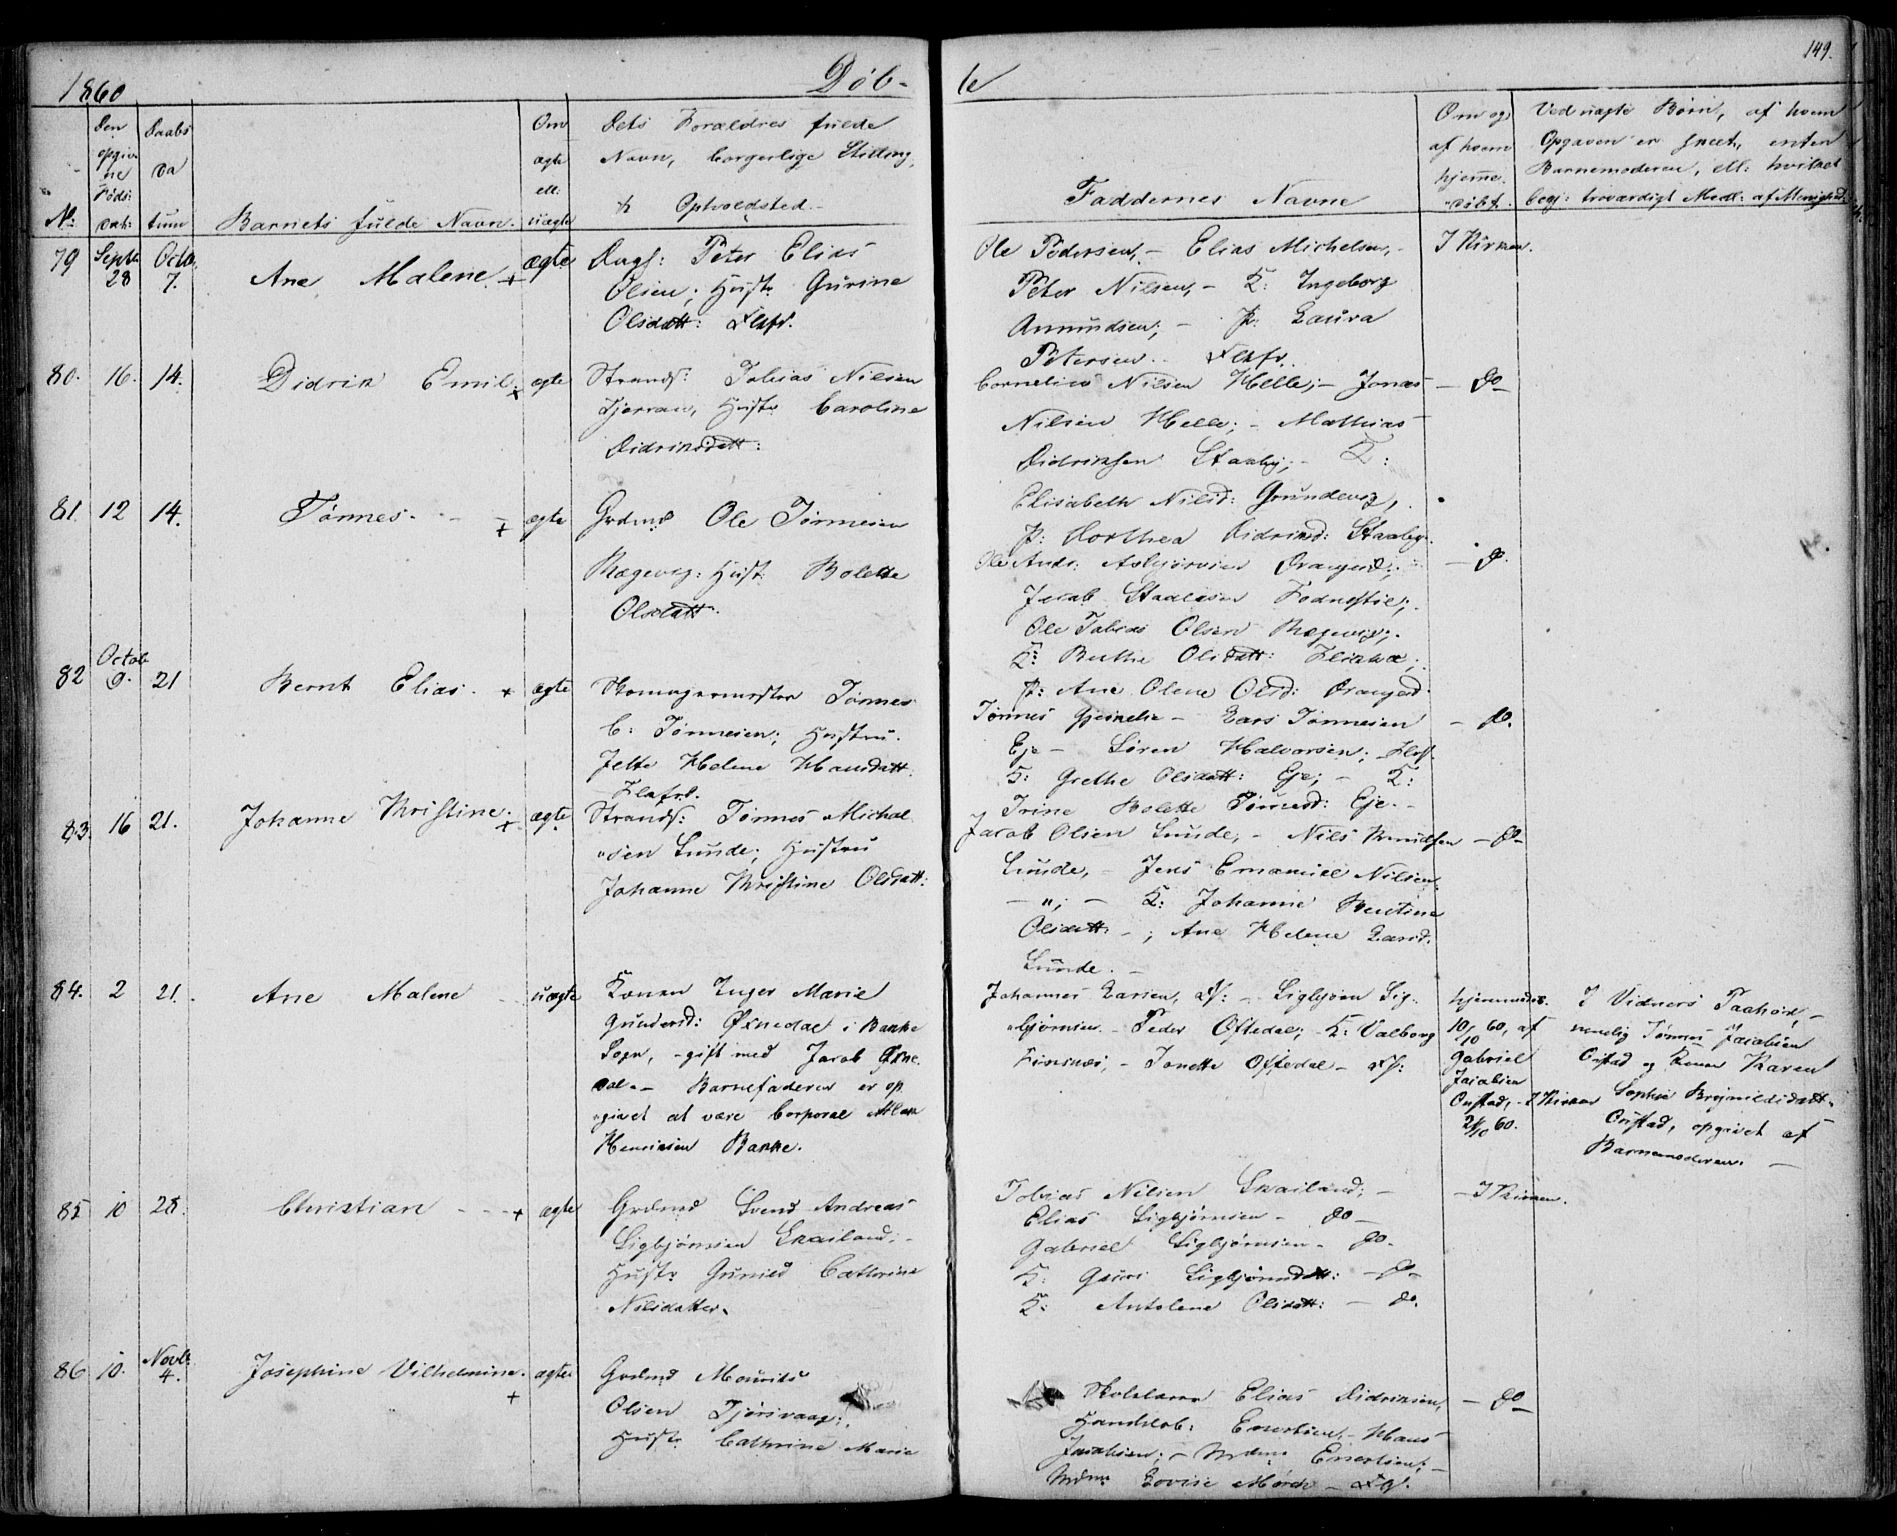 1860
Døb-
te
149.
No:
Den opgivne Føds: Dat:
Daabs Datum
Barnets fulde Navn.
Om ægte ell: uægte
Dets Forældres fulde
Navn, borgerlige Stilling,
& Opholdsted.
Faddernes Navne
Om og af hvem hjemme-døbt.
Ved uægte Børn, af hvem
Opgaven er skeet, enten
Barnemoderen, ell: hvilket
troværdigt Medl: af Menighed:
79 Septb 28 Octb. 7. Ane Malene. + ægte
Dags: Peter Elias
Olsen; Hust: Gurine
Olsdatt: Flkfd.
Ole Pedersen, - Elias Michelsen, -
Peter Nilsen, - K: Ingeborg
Amundsen; - P: Laura
Petersen. - Flkfd.
I Kirken.
80. 16. 14. Didrik Emil. + ægte
Strands: Tobias Nilsen
Hustr Caroline
Didriksdatt:
Cornelius Nilsen Helle; - Jonas
Nilsen Helle; - Mathias
Didriksen Staaby; - K:
Elisabeth Nilsd: Grundevig,
P: Dorthea Didriksd: Staaby.
- Do -
81. 12 14. Tønnes. - - + ægte
Grdmd Ole Tønnesen
Rægevig: Hust: Bolette
Olsdatt:
Ole Andr: Asbjørnsen
Jacob
Ole Tobias Olsen Rægevig;
K: Berthe Olsdatt:
P: Ane Olene Olsd:
- Do.
82 Octob 9. 21 Bernt Elias. + ægte
Skomagermester Tønnes
C: Tønnesen; Hustru.
Jette Helene Hansdatt:
Flkfd.
Tønnes - Lars Tønnesen
Eje - Søren Halvorsen;
K: Grethe Olsdatt: Eje; - K:
Trine Bolette Tønnesd: Eje. -
- Do.
83. 16 21. Johanne Kristine. + ægte
Strands: Tønnes Michal
"sen Lunde; Hustru
Johanne Kristine Olsdatt:
Jacob Olsen Lunde; - Nils Knudsen
Lunde, - Jens Emanuel Nilsen
- "; - K: Johanne Bentine
Olsdatt: - ; Ane Helene Larsd:
Lunde. -
- Do -
84. 2 21. Ane Malene uægte
Konen Inger Marie
Gundersd: Øxnedal i Bakke
Sogn, - gift med Jacob Øxne
dal. - Barnefaderen er op
"givet at være Corporal
Henriksen Bakke.
Johannes Larsen, - Sigbjørn Sig-
"bjørnsen - Peder Oftedal; - K: Valborg
- Jonette Oftedal -
hjemmedøb.
10/10 60, af
Gabriel
Jacobsen
- I Kirken
21/10 60.
I Vidners Paahør, -
nemlig Tønnes Jacobsen
og Konen Karen
Sophie
opgivet af
Barnemoderen. -
85 10 28. Christian - - - + ægte
Grdmd Svend Andreas
Sigbjørnsen Skailand; -
Hustr Gunild Cathrine
Nilsdatter.
Tobias Nilsen Skailand; -
Elias Sigbjørnsen - Do -
Gabriel Sigbjørnsen - Do.
K: Guri Sigbjørnsdatt: - Do -
K: Antolene Olsdatt: - Do.
- I Kirken.
86. 10. Novb. 4. Josephine Vilhelmine. + ægte
Grdmd Mourits
Olsen
Hustr Cathrine Marie
Skolelærer Elias Didriksen,
Handelsb: Evertsen, - Hans
Jacobsen; - Mdm: Evertsen; -
Mdm: Lovise Mørch -
- Do -